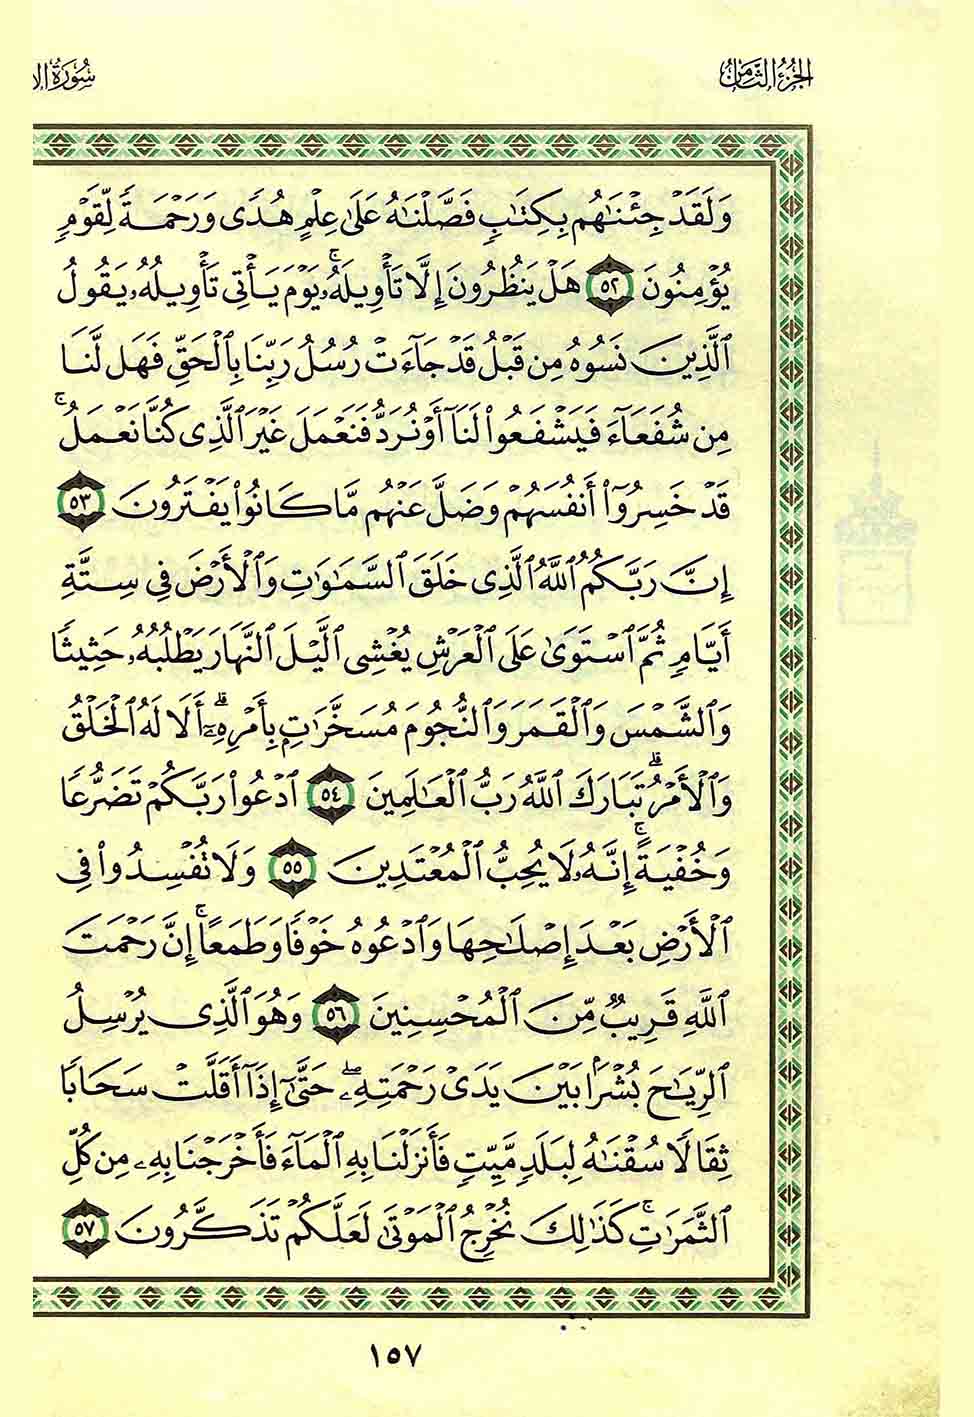 الجزء الثامن
سورة الا
وَلَقَدْ جِئْنَٰهُم بِكِتَٰبٍ فَصَّلْنَٰهُ عَلَىٰ عِلْمٍ هُدًى وَرَحْمَةً لِّقَوْمٍ
يُؤْمِنُونَ ٥٢ هَلْ يَنظُرُونَ إِلَّا تَأْوِيلَهُۥۚ يَوْمَ يَأْتِى تَأْوِيلُهُۥ يَقُولُ
ٱلَّذِينَ نَسُوهُ مِن قَبْلُ قَدْ جَآءَتْ رُسُلُ رَبِّنَا بِٱلْحَقِّ فَهَل لَّنَا
مِن شُفَعَآءَ فَيَشْفَعُوا۟ لَنَآ أَوْ نُرَدُّ فَنَعْمَلَ غَيْرَ ٱلَّذِى كُنَّا نَعْمَلُۚ
قَدْ خَسِرُوٓا۟ أَنفُسَهُمْ وَضَلَّ عَنْهُم مَّا كَانُوا۟ يَفْتَرُونَ ٥٣
إِنَّ رَبَّكُمُ ٱللَّهُ ٱلَّذِى خَلَقَ ٱلسَّمَٰوَٰتِ وَٱلْأَرْضَ فِى سِتَّةِ
أَيَّامٍ ثُمَّ ٱسْتَوَىٰ عَلَى ٱلْعَرْشِ يُغْشِى ٱلَّيْلَ ٱلنَّهَارَ يَطْلُبُهُۥ حَثِيثًا
وَٱلشَّمْسَ وَٱلْقَمَرَ وَٱلنُّجُومَ مُسَخَّرَٰتٍۭ بِأَمْرِهِۦٓۗ أَلَا لَهُ ٱلْخَلْقُ
وَٱلْأَمْرُۗ تَبَارَكَ ٱللَّهُ رَبُّ ٱلْعَٰلَمِينَ ٥٤ ٱدْعُوا۟ رَبَّكُمْ تَضَرُّعًا
وَخُفْيَةًۚ إِنَّهُۥ لَا يُحِبُّ ٱلْمُعْتَدِينَ ٥٥ وَلَا تُفْسِدُوا۟ فِى
ٱلْأَرْضِ بَعْدَ إِصْلَٰحِهَا وَٱدْعُوهُ خَوْفًا وَطَمَعًاۚ إِنَّ رَحْمَتَ
ٱللَّهِ قَرِيبٌ مِّنَ ٱلْمُحْسِنِينَ ٥٦ وَهُوَ ٱلَّذِى يُرْسِلُ
ٱلرِّيَٰحَ بُشْرًۢا بَيْنَ يَدَىْ رَحْمَتِهِۦۖ حَتَّىٰٓ إِذَآ أَقَلَّتْ سَحَابًا
ثِقَالًا سُقْنَٰهُ لِبَلَدٍ مَّيِّتٍ فَأَنزَلْنَا بِهِ ٱلْمَآءَ فَأَخْرَجْنَا بِهِۦ مِن كُلِّ
ٱلثَّمَرَٰتِۚ كَذَٰلِكَ نُخْرِجُ ٱلْمَوْتَىٰ لَعَلَّكُمْ تَذَكَّرُونَ ٥٧
١٥٧